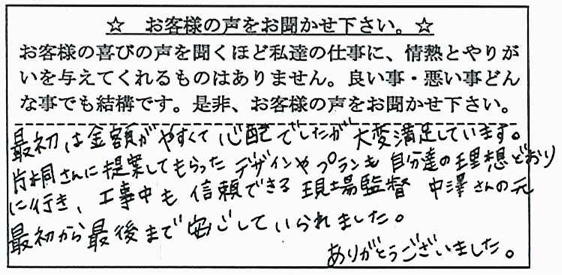 ☆ お客様の声をお聞かせ下さい。☆
お客様の喜びの声を聞くほど私達の仕事に、情熱とやりが
いを与えてくれるものはありません。良い事・悪い事どん
な事でも結構です。是非、お客様の声をお聞かせ下さい。
最初は金額がやすくて心配でしたが大変満足しています。
片桐さんに提案してもらったデザインやプランも自分達の理想どおり
に行き、工事中も信頼できる現場監督 中澤さんの元
最初から最後まで安心していられました。
ありがとうございました。